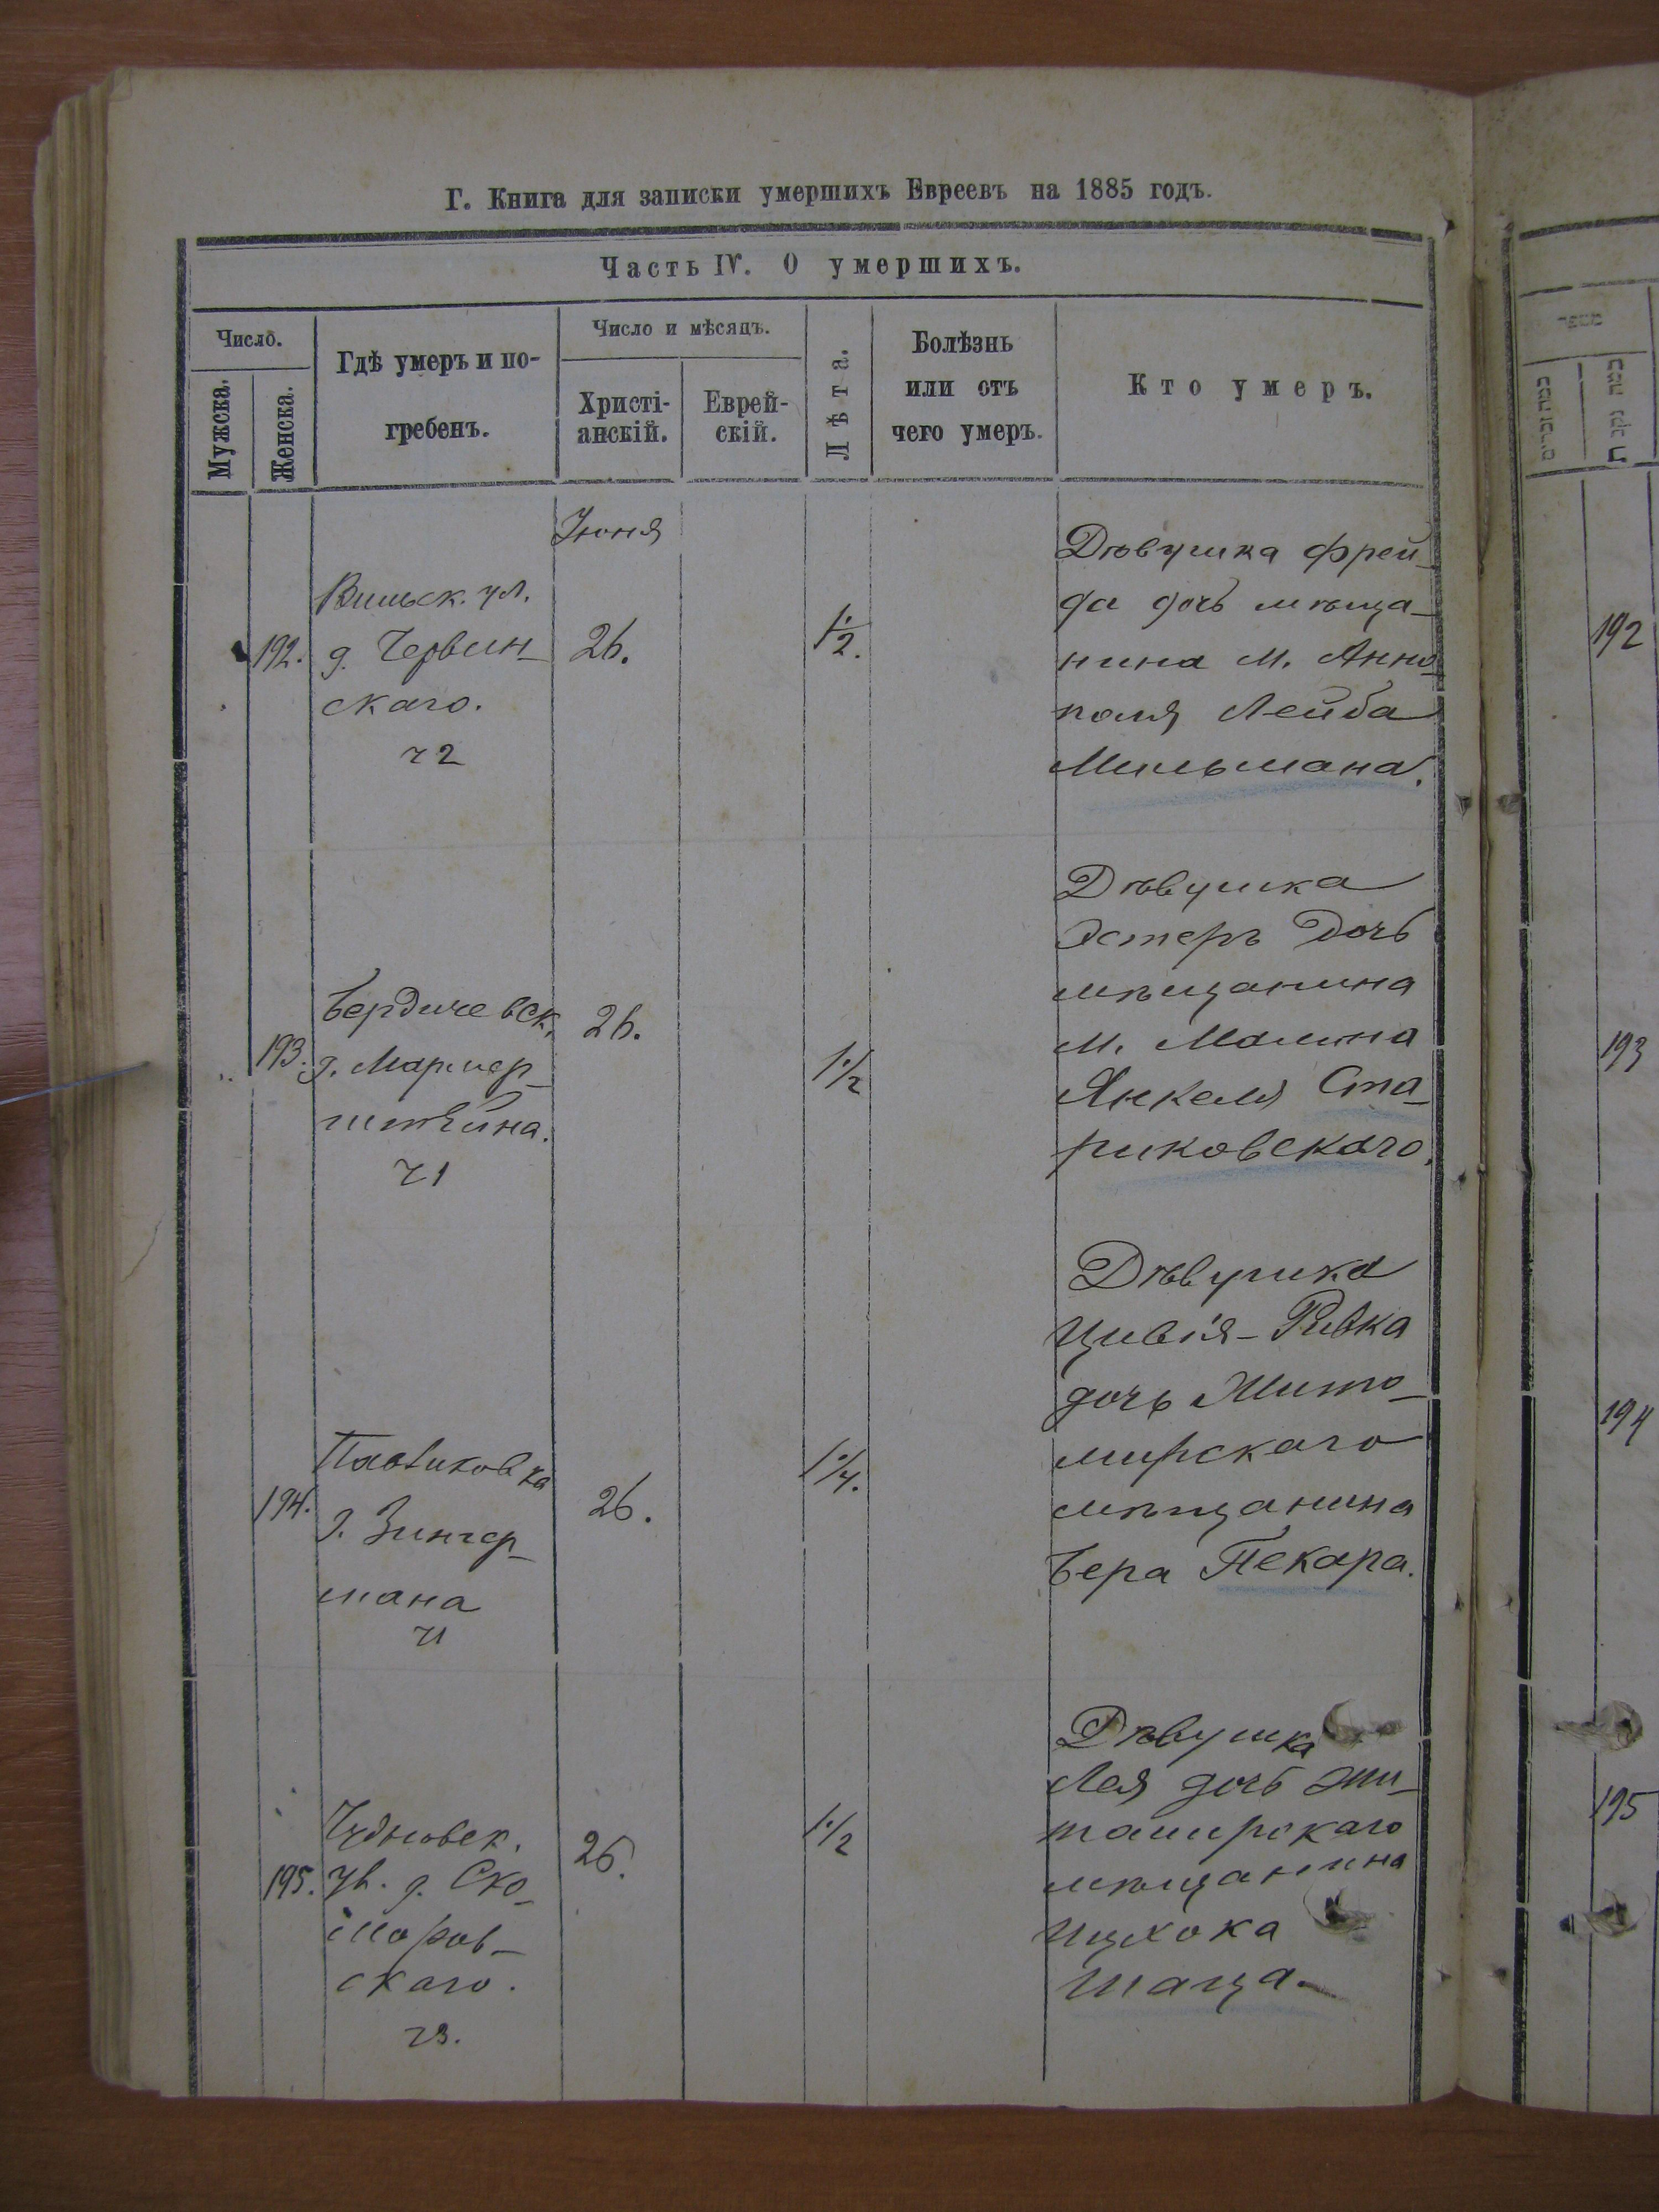 Г. Книга для записки умершихъ Евреевъ на 1885 годъ.
Часть IV. О умершихъ.
Число.
Мужска.
Женска.
Гдѣ умеръ и по-
гребенъ.
Число и мѣсяцъ.
Христі-
анскій.
Еврей-
скій.
Лѣта.
Болѣзнь
или отъ
чего умеръ.
Кто умеръ.
Июня
192.
Вильск. ул.
д. Червин-
скаго.
ч 2
26.
1/2.
Дѣвушка Фрей-
да дочь мѣща-
нина м. Анно-
поля Лейба
Мильмана.
192
193.
Бердичевск.
д. Мармер-
штейна.
ч 1
26.
1/2
Дѣвушка
Эстеръ Дочь
мѣщанина
м. Малина
Янкеля Ста-
риковскаго.
193
194.
Павликовка
д. Зингер-
мана
ч 1
26.
1/4.
Дѣвушка
Цивія-Ривка
дочь Жито-
мирскаго
мѣщанина
Бера Пекара.
194
195.
Чудновск.
ул. д. Ско-
моров-
скаго.
ч 3.
26.
1/2
Дѣвушка
Лея дочь жи-
томирскаго
мѣщанина
Ицхока
Шаца
195